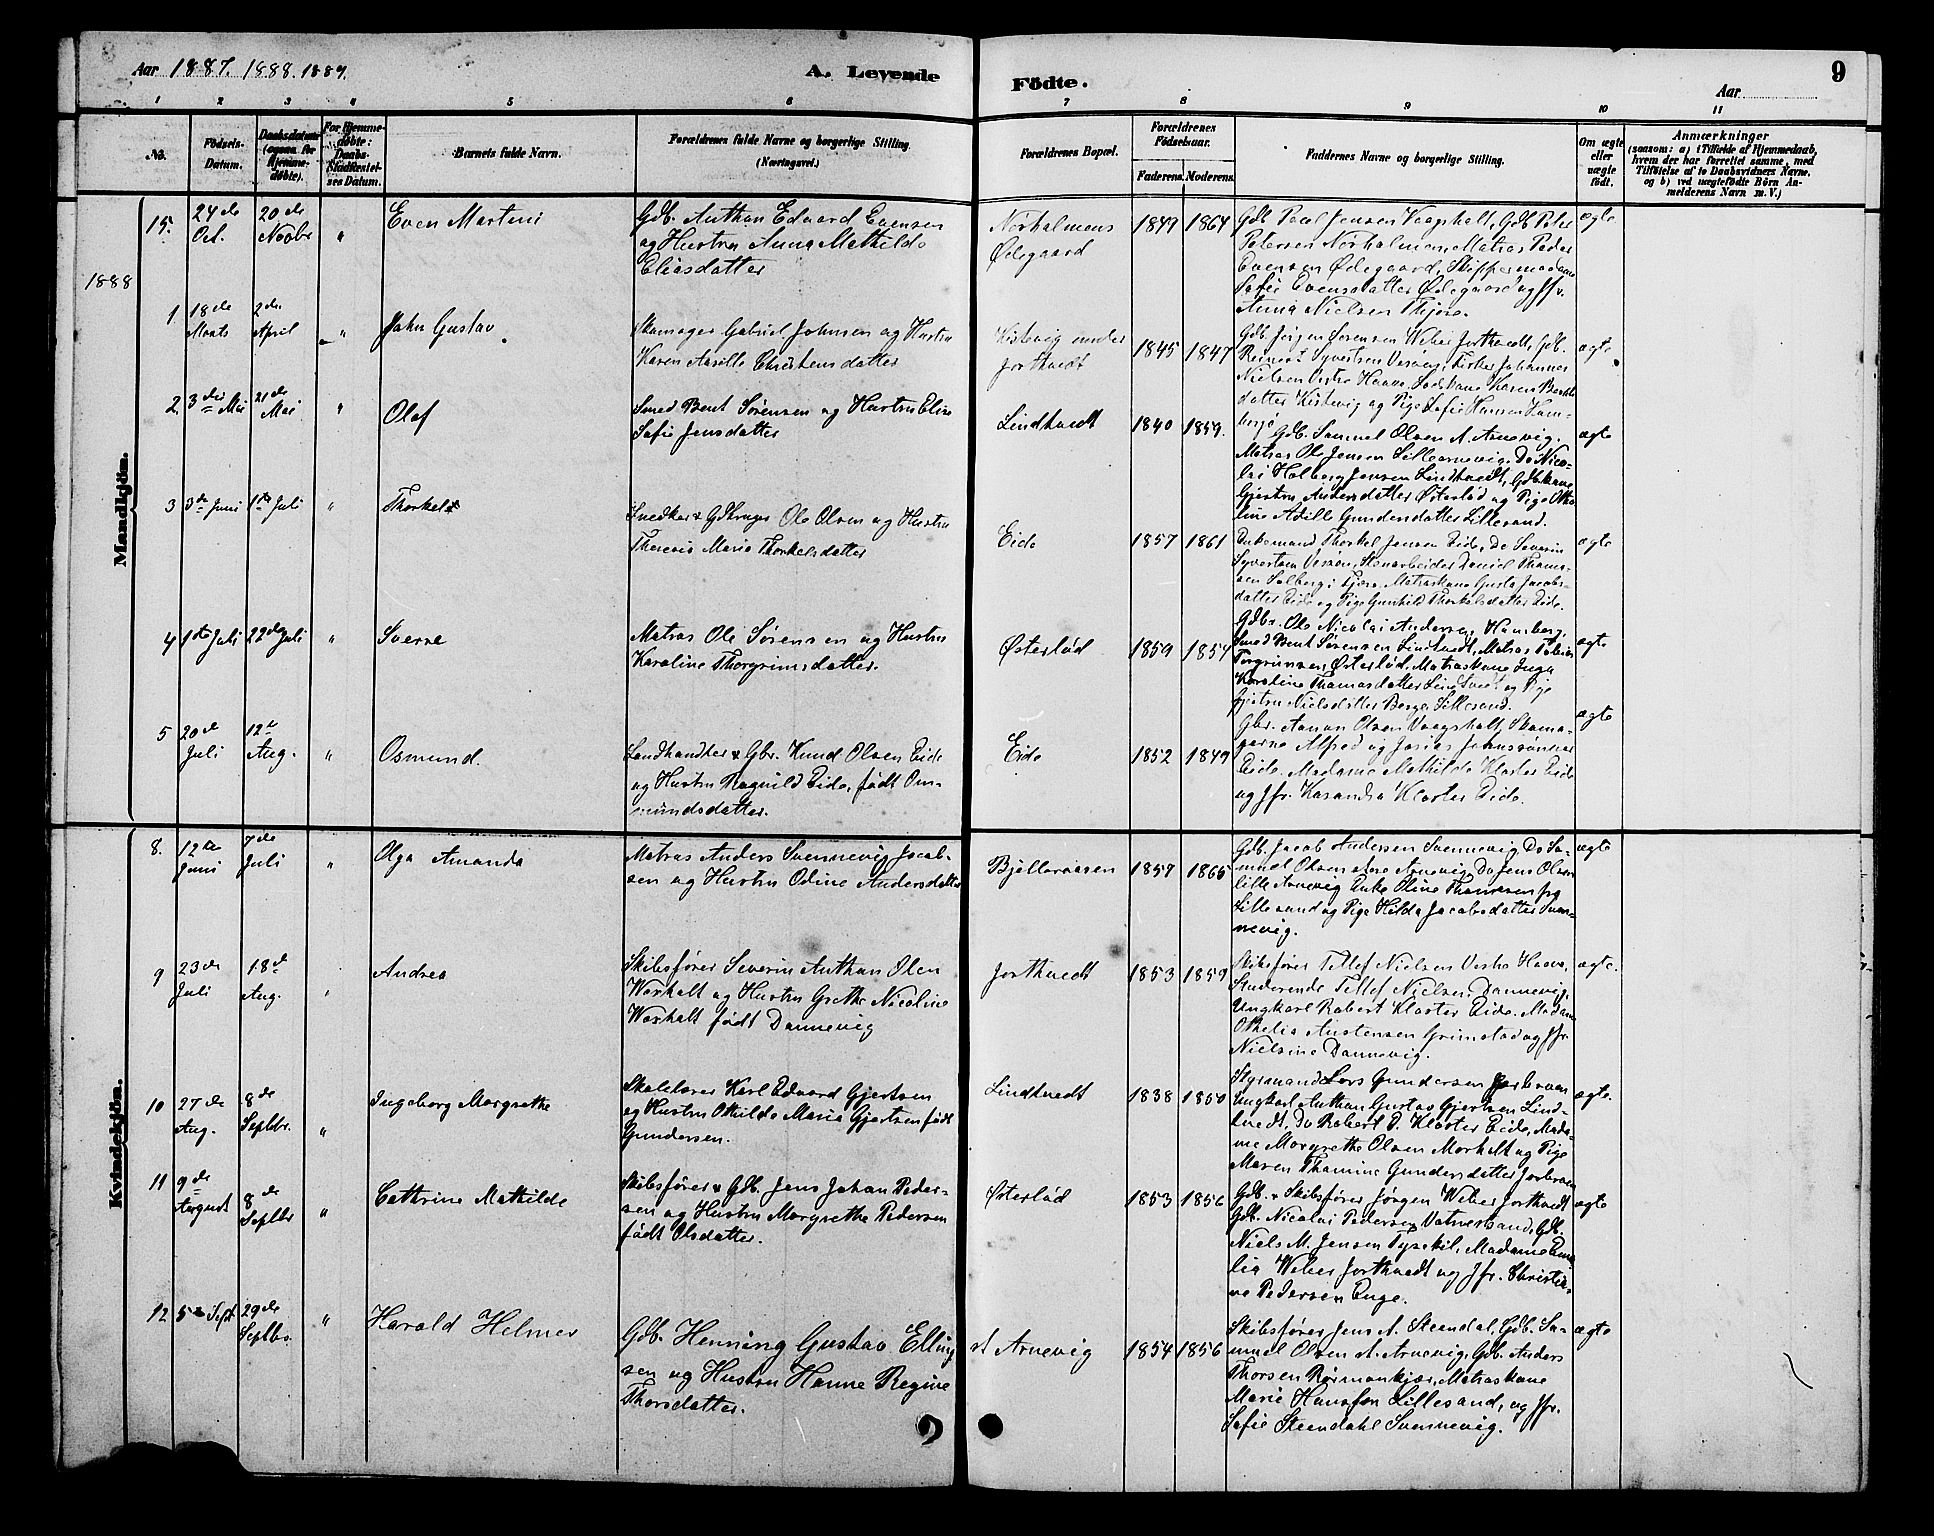 Aar 1887. 1888. 1889.
A. Levende
Födte.
Aar
9
1 2 3 4 5 6 7 8 9 10 11
No.
Födsels-Datum.
Daabsdatum (ogsaa for Hjemmedøbte).
For Hjemmedøbte: Daabs-Stadfæstelses Datum.
Barnets fulde Navn.
Forældrenes fulde Navne og borgerlige Stilling. (Næringsvei.)
Forældrenes Bopæl.
Forældrenes Födselsaar.
Faderens. Moderens.
Faddernes Navne og borgerlige Stilling.
Om ægte eller uægte födt.
Anmærkninger
(saasom: a) i Tilfælde af Hjemmedaab, hvem der har forrettet samme, med Tilføielse af to Daabsvidners Navne, og b) ved uægtefödte Börn Anmelderens Navn m. V.)
Mandkjön.
15. 24de Oct. 20de Novbr " Even Martini
Gdb. Anthon Edvard Evensen
og Hustru Anna Mathilde
Eliasdatter
Nørholmens
Ødegaard
1849 1864
Gdb Paul Jensen Vaagsholt, Gdb Peter
Petersen Nørholmen, Matros Peder
Evensen Ødegaard, Skippermadame
Sofie Evensdatter Ødegaard og Jfr.
Anna Nielsen Thjøre.
ægte
1888
1 18de Marts 2den April " John Gustav
Skomager Gabriel Johnsen og Hustru
Karen Aasille Christensdatter
Kistevig under
Jorthvedt
1845 1847
Gdb. Jørgen Sørensen Weber Jorthvedt, Gdb.
Reinert Syvertsen Vesøen, Fisker Johannes
Nielsen Vestre Haave, Karen
datter Kistevig og Pige Sofie Hansen Ham-
ægte
2 3die Mai 21de Mai " Olaf
Smed Bent Sørensen og Hustru Elise
Sofie Jensdatter
Lindtvedt
1840 1859.
Gdb. Samuel Olsen st. Arnevig,
Matros Ole Jensen Lille Arnevig, Do Nico-
lai Holberg Jensen Lindtvedt, Gdbkone
Gjertru Andersdatter Østerlød og Pige Otho-
line Adille Gundersdatter Lillesand.
ægte
3 3de Juni 1ste Juli " Thorkel
Snedker & Gdbruger Ole Olsen og Hustru
Theresie Marie Thorkelsdatter
Eide
1857 1861
Enkemand Thorkel Jensen Eide, Do Severin
Syvertsen Vesøen, Stenarbeider Daniel Thom-
sen Solberg i Fjære, Matroskone Gusta Jacobs-
datter Eide og Pige Gunhild Thorkelsdatter Eide.
ægte
4 1ste Juli 22de Juli " Sverre
Matros Ole Sørensen og Hustru
Karoline Thorgrimsdatter.
Østerlød
1859 1854
Gdbr. Ole Nicolai Andersen Homberg,
Smed Bent Sørensen Lindtvedt, Matros Tobias
Torgrimsen Østerlød, Matroskone Inga
Karoline Thomasdatter Lindtvedt og Pige
Gjertru Nielsdatter Berge Lillesand.
ægte
5 20de Juli 12te Aug. " Osmund.
Landhandler & Gbr. Knud Olsen Eide
og Hustru Ragnild Eide, født Om-
mundsdatter.
Eide
1852 1849
Gbr. Aanon Olsen Vaagsholt, Skoma-
gerne Alfred og Josias Johnssønner
Eide. Madame Mathilde Kloster Eide
og Jfr. Kasandra Kloster Eide.
ægte
Kvindekjön.
8. 12te Juni 7de Juli " Olga Amanda
Matros Anders Svennevig Jacob-
sen og Hustru Odine Andersdatter
Bjelleraasen
1857 1865
Gdb. Jacob Andersen Svennevig, Do Sa-
muel Olsen store Arnevig, Do Jens Olsen
lille Arnevig Enke Oline Thomesen fra
Lillesand og Pige Hilda Jacobsdatter Sven-
nevig.
ægte
9 23de Juli 18de Aug. " Andrea
Skibsfører Severin Anthon Olsen
Woxholt og Hustru Grethe Nicoline
Woxholt født Dannevig
Jorthvedt
1853 1859
Skibsfører Tellef Nielsen Vestre Haave,
Studerende Tellef Nielsen Dannevig,
Ungkarl Robert Kloster Eide. Madame
Othelia Austensen Grimstad og Jfr.
Nielsine Dannevig.
ægte.
10 27de Aug. 8de Septbr. " Ingeborg Margrethe
Skolelærer Karl Edvard Gjertsen
og Hustru Othilde Marie Gjertsen født
Gundersen.
Lindtvedt
1838 1850
Styrmand Lars Gundersen
Ungkarl Anthon Gustav Gjertsen Lind-
tvedt, Do Robert P. Kloster Eide, Mada-
me Margrethe Olsen Morholt og Pige
Maren Thomine Gundersdatter
ægte.
11 9de August 8de Septbr " Cathrine Mathilde
Skibsfører & Gdb. Jens Johan Peder-
sen og Hustru Margrethe Pedersen
født Olsdatter.
Østerlød
1853 1856
Gdb. & Skibsfører Jørgen Weber Jorthvedt
Gdb. Nicolai Pedersen Vatnestrand, Gdb.
Niels M. Jensen Tyskil, Madame Emi-
lia Weber Jorthvedt og Jfr. Christia-
ne Pedersen Enge.
ægte
12 5te Sept 29de Septbr. " Harald Helmer
Gdb. Henning Gustav Elling
sen og Hustru Hanne Regine
Thorsdatter.
st Arnevig
1854 1856
Skibsfører Jens A. Steendal, Gdb. Sa-
muel Olsen st. Arnevig, Gdb. Anders
Thorsen Rømonkjær, Matroskone
Marie Hansen Lillesand, og Jfr.
Sofie Steendahl Svennevig.
ægte